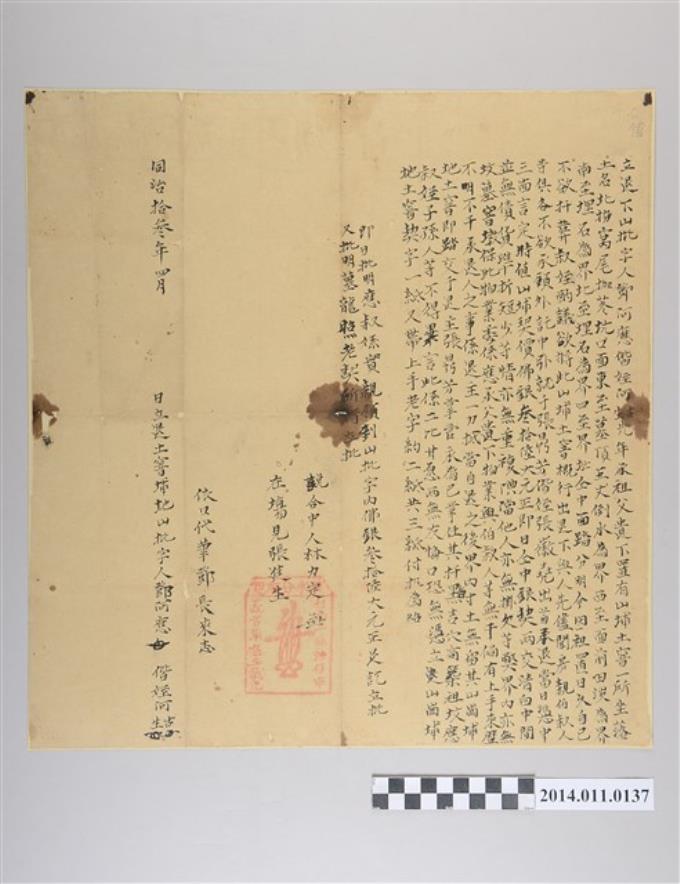 立退下山批字人鄧阿應偕姪阿 年承祖父貴下置有山埔土窨一所坐落
土名北插窩尾 坑口面東至墓頂 丈倒水為界西至面前田 為界
南至埋石為界北至埋石為界四至界址仝中面踏分明今因祖置日久自己
不欲扦葬叔姪酌議欲將此山埔土窨 行出退下與人先儘問房親伯叔人
等俱各不欲承領外託中引就于張 芳偕姪張徽 出首承退當日憑中
三面言定時值山埔契價佛銀叁拾陸大元正即日仝中銀契兩交清白中間
並無債貨準折短少等情亦無重複 當他人亦無 欠等弊界內亦無
坟墓窨堆保此物業委係應承父貴下物業與伯叔人等無干倘有上手來歷
不明不干承退人之事係退主一力抵當自退之後界內寸土無留其山崗埔
地土窨即踏交于退主張 芳掌管永為己業任其扦 吉穴高築祖坟應
叔姪子孫人等不得異言此係二比甘愿兩無反悔口恐無憑立退山崗埔
地土窨契字一紙又帶上手老字約二紙共三紙付執為照
即日批明應叔侄實親領到山批字內佛銀叁拾陸大元正足訖立批
又批明墓龍照老契所行立批
說合中人林力定
在場見張 生
依口代筆鄧長來志
同治拾叁年四月 日立退土窨埔地山批字人鄧阿應 偕姪阿
2014.011.0137